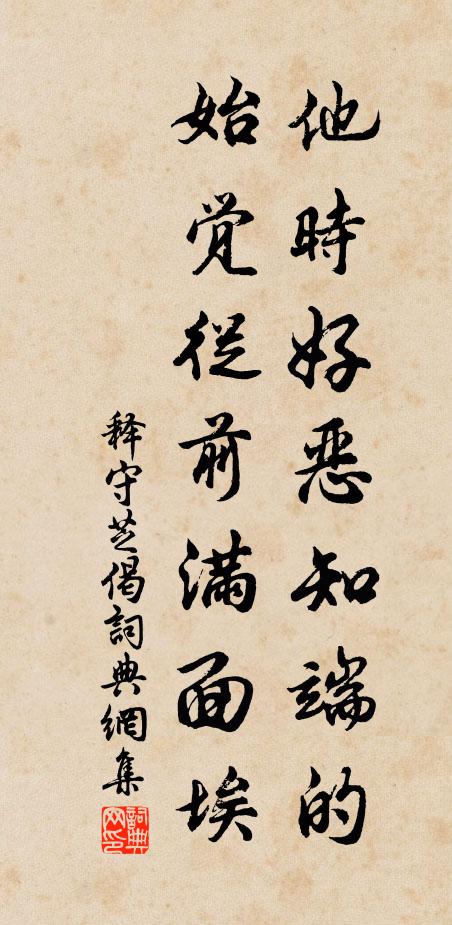 他時好恶知端的
始觉從前满面埃
释守芝偈詞典網集
詞典网印